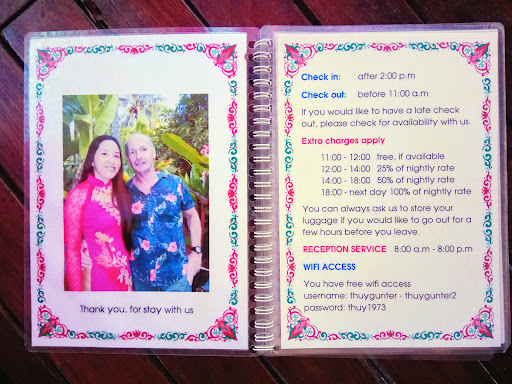 Thank you, for stay with us
Check in: after 2:00 p.m
Check out: before 11:00 a.m
If you would like to have a late check
out, please check for availability with us.
Extra charges apply
11:00 - 12:00 free, if available
12:00 - 14:00 25% of nightly rate
14:00 - 18:00 50% of nightly rate
18:00 - next day 100% of nightly rate
You can always ask us to store your
luggage if you would like to go out for a
few hours before you leave.
RECEPTION SERVICE 8:00 a.m - 8:00 p.m
WIFI ACCESS
You have free wifi access
username: thuygunter - thuygunter2
password: thuy1973